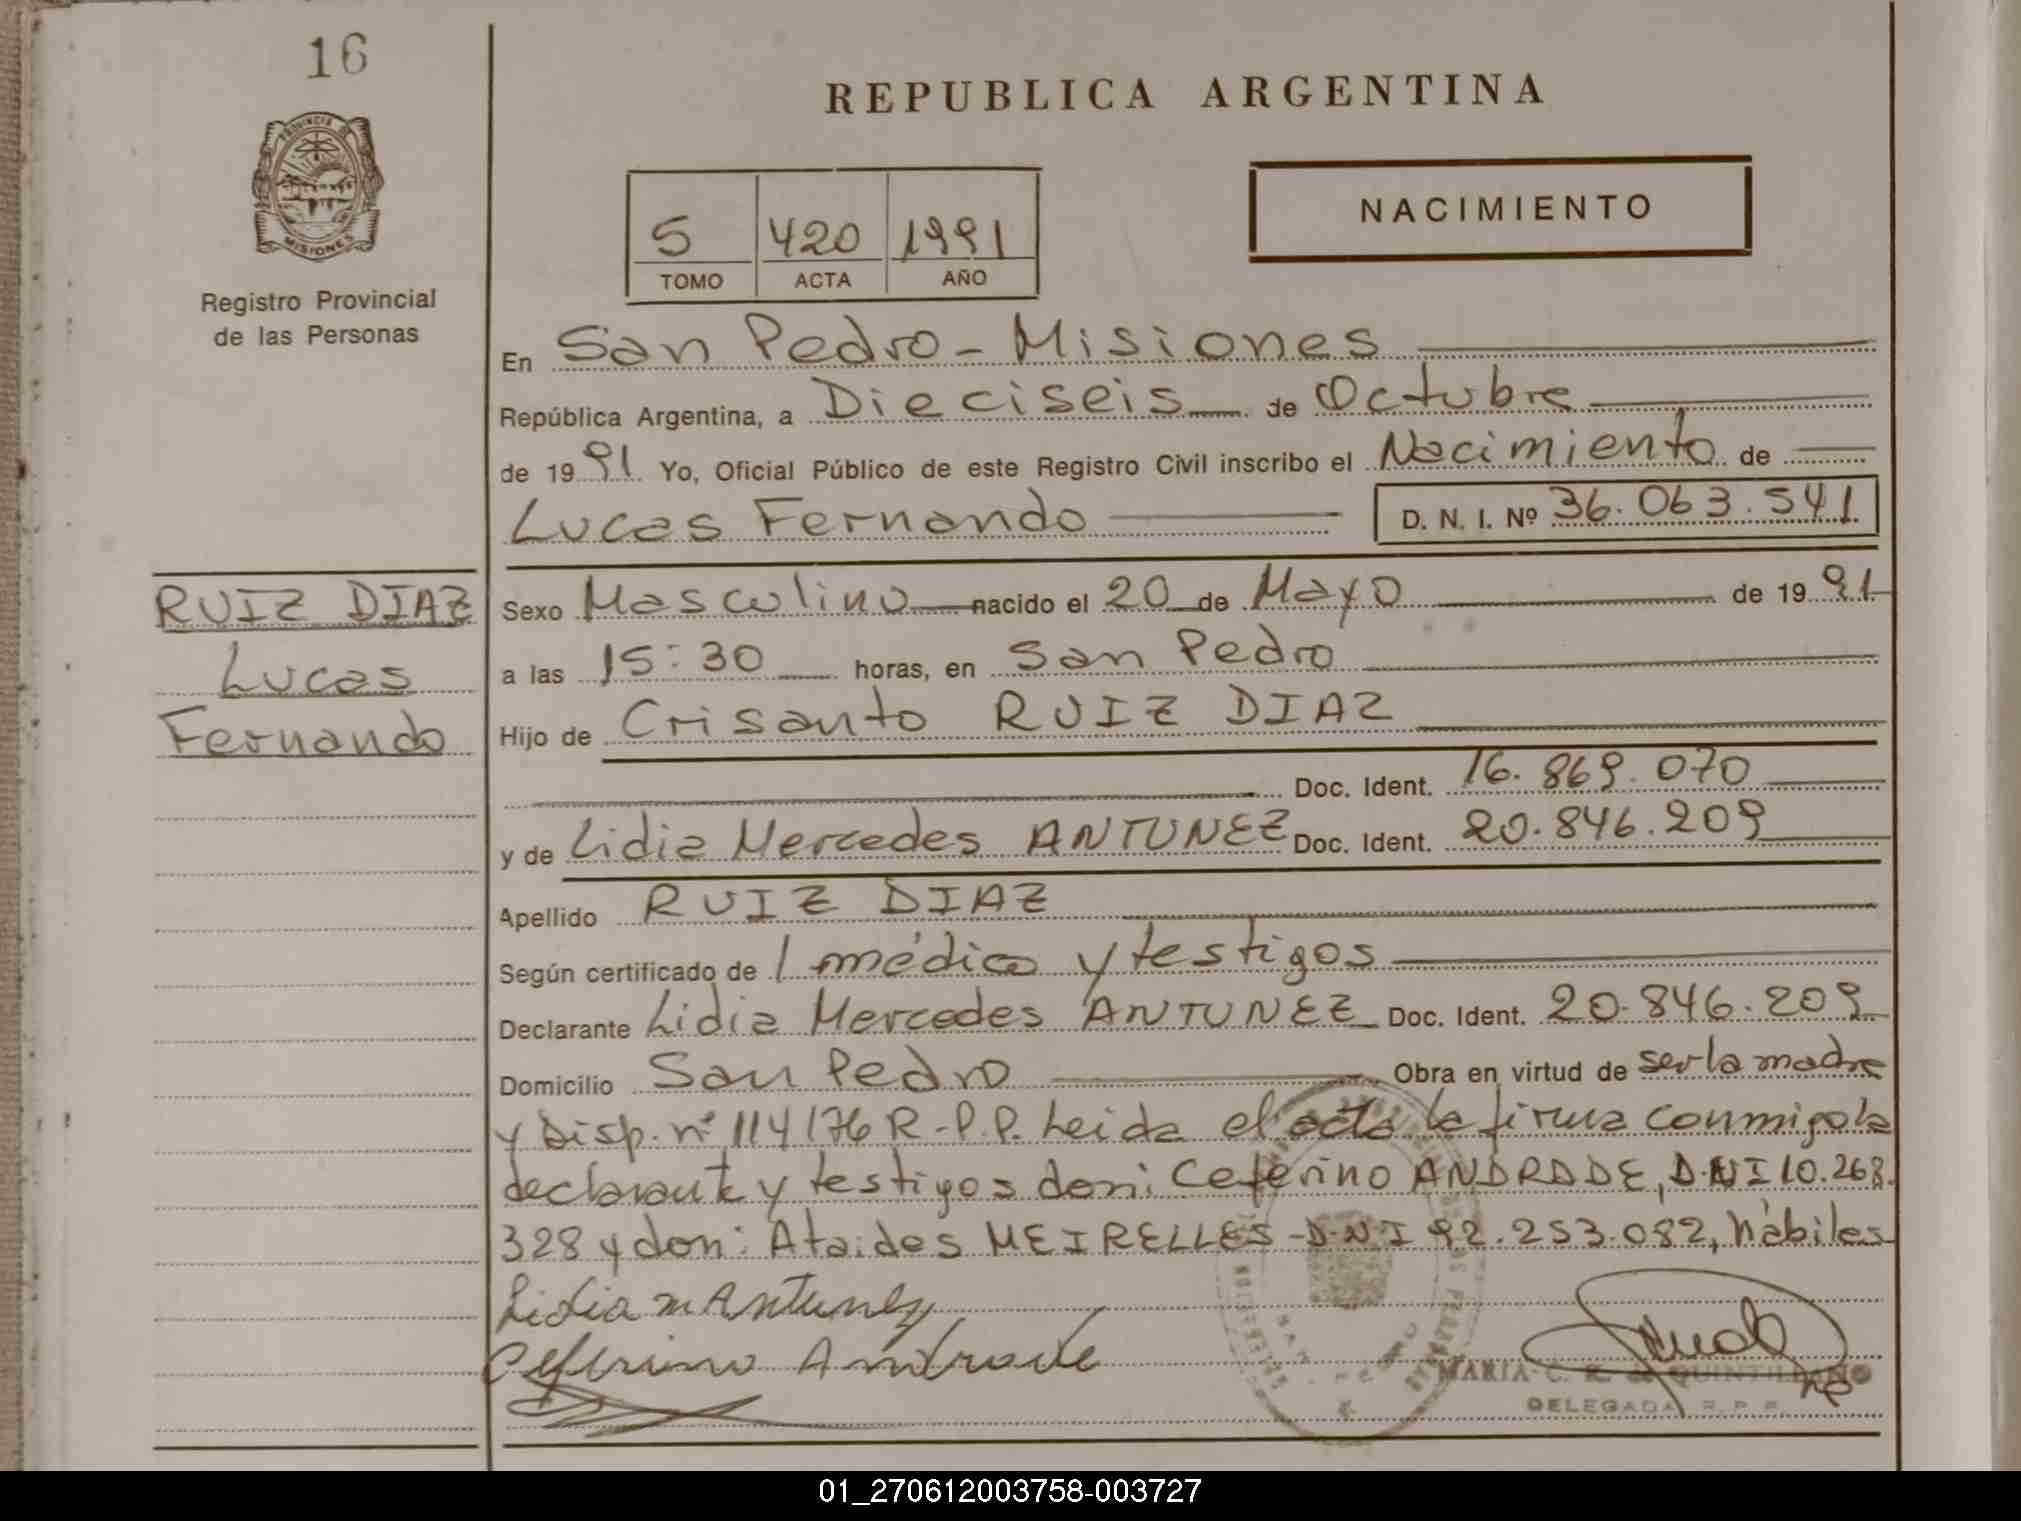 16
PROVINCIA DE
MISIONES
Registro Provincial
de las Personas
REPUBLICA ARGENTINA
5 420 1991
TOMO ACTA AÑO
NACIMIENTO
En San Pedro - Misiones
República Argentina, a Dieciseis de Octubre
de 1991 Yo, Oficial Público de este Registro Civil inscribo el Nacimiento de
Lucas Fernando D. N. I. Nº 36.063.541
RUIZ DIAZ
Lucas
Fernando
Sexo Masculino nacido el 20 de Mayo de 1991
a las 15:30 horas, en San Pedro
Hijo de Crisanto RUIZ DIAZ
Doc. Ident. 16.869.070
y de Lidia Mercedes ANTUNEZ Doc. Ident. 20.846.209
Apellido RUIZ DIAZ
Según certificado de 1 médico y testigos
Declarante Lidia Mercedes ANTUNEZ Doc. Ident. 20.846.209
Domicilio San Pedro Obra en virtud de ser la madre
y Disp. nº 114/76 R.P.P. Leida el acta la firma conmigo la
declarante y testigos don: Ceferino ANDRADE, D.N.I 10.268.
328 y don: Ataides MEIRELLES - D.N.I 92.253.082, hábiles
Lidia M Antunez
Ceferino Andrade
MARIA C. R. de QUINTILIANO
DELEGADA R. P. P.
01_270612003758-003727